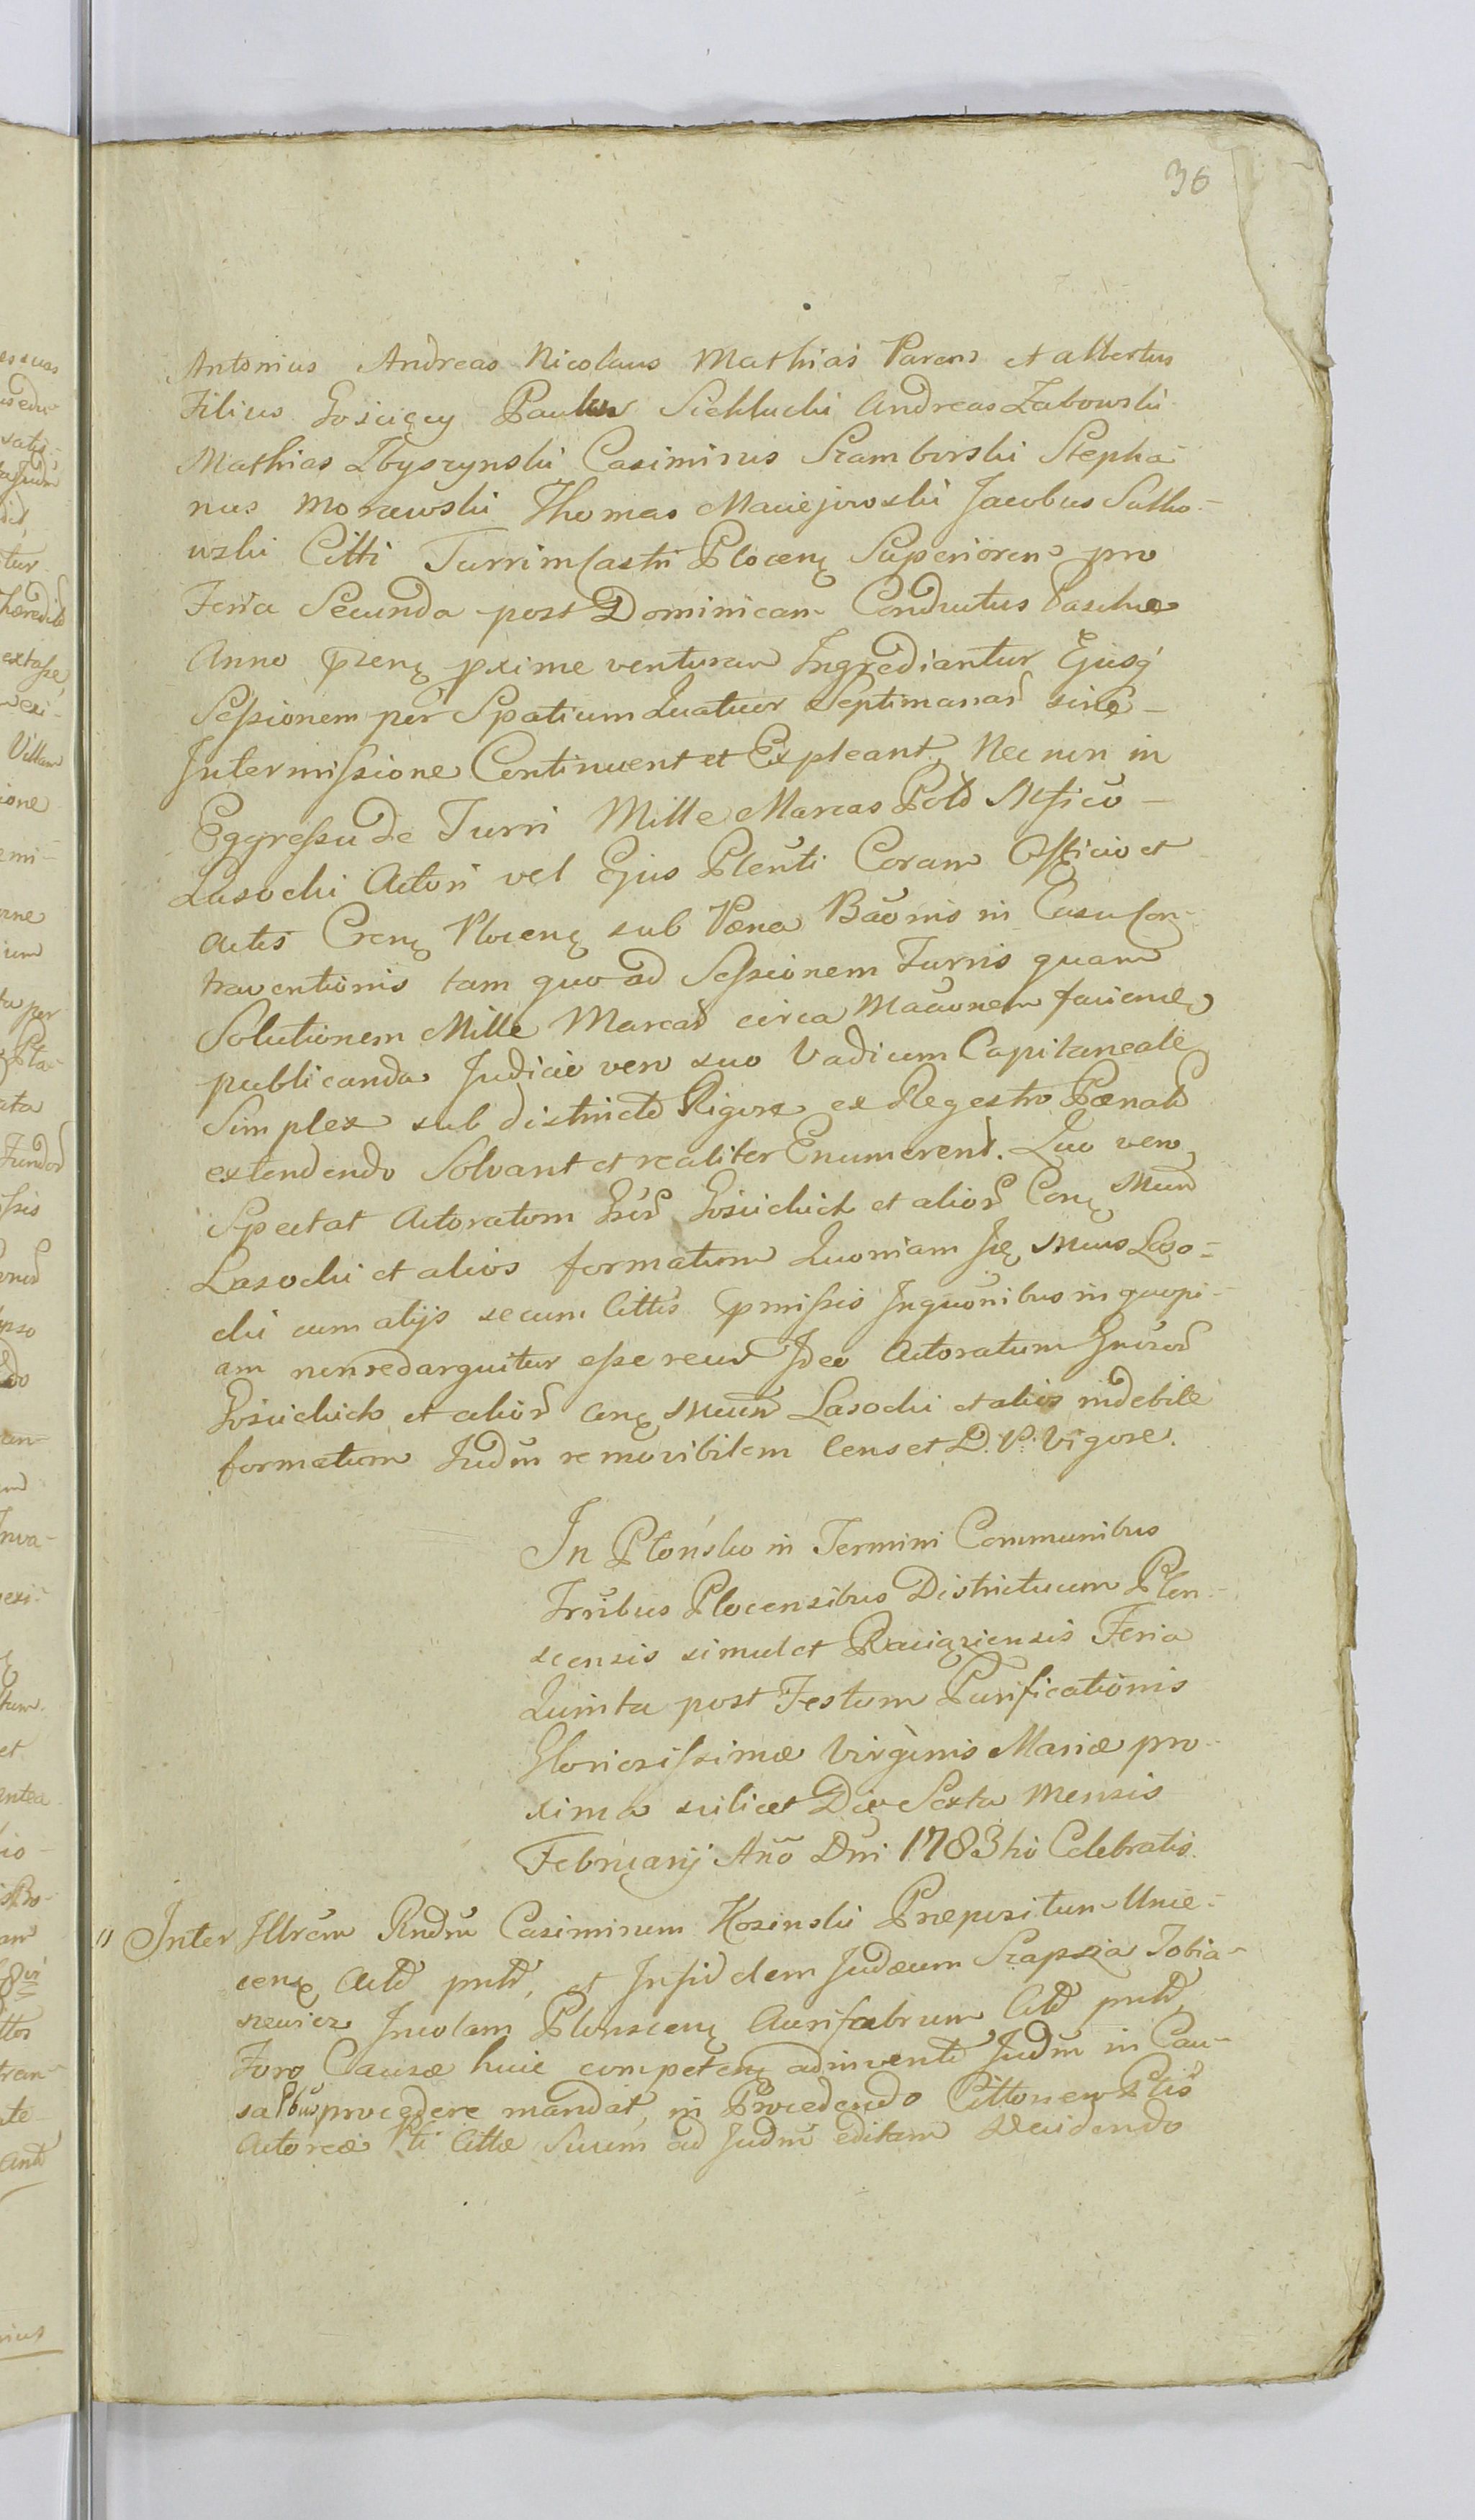 36
Antonius Andreas Nicolaus Mathias Parens et Albertus
Filius Gosciccy Paulus Siekłucki Andreas Zabowski
Mathias Zbyszynski Casimirus Szamborski Stepha-
nus Morawski Thomas Maciejowski Jacobus Sutko-
wski Citti Turrim Castri Plocenę Superiorem pro
Feria Secunda post Dominicam Conductus Paschæ
Anno przenę pxime venturam Ingrediantur Ejusq
Sessionem per Spatium Quatuor Septimanas sine
Intermissione Continuent et Expleant, Nec non in
Eggressu de Turri Mille Marcas Pold Mfico
Lasocki Actori vel Ejus Plenti Coram Officio et
Actis Crenę Plocenę sub Pæna Baonis in Casu Con-
traventionis tam quo ad Sessionem Turris quam
Solutionem Mille Marcas circa Macionem
publicanda Judicio vero suo Vadium Capitaneale
Simplex sub districto Rigore ex Regestro Pænali
extendendo Solvant et realiter Enumerent. Quo vero
Spectat Actoratum Goscickich et alior Conę Mum
Lasocki et alios formatum Quoniam Mcus Laso-
cki cum alijs secum Cittis pmissis Inquonibus in quopi-
am non redarguitur esse reus Ideo Actoratum
Goscickich et alior conę Mum Lasocki et alios indebite
formatum Judm removibilem Censet D. P. Vigore.
In Płońsko in Termini Communibus
Trribus Plocensibus Districtuum Plon-
scensis simul et Raciąziensis Feria
Quinta post Festum Purificationis
Gloriosissimæ Virginis Mariæ pro-
xima scilicet Die Sexta Mensis
Februarij Año Dni 1783 tio Celebratis.
" Inter Illrem Rndm Casimirum Kosinski Præpositum Unie-
cenę Actd pntd, et Infidelem Judæum Szapszia Tobia-
szewicz Incolam Plonscenę Aurifabrum Citd pntd,
Foro Causæ huic competenę adinvento Judm in Cau-
sa Ptbus procedere mandat, in Procedendo Cittonem Ptis
Actoreæ Pti Cittæ Suum ad Judm editam Decidendo